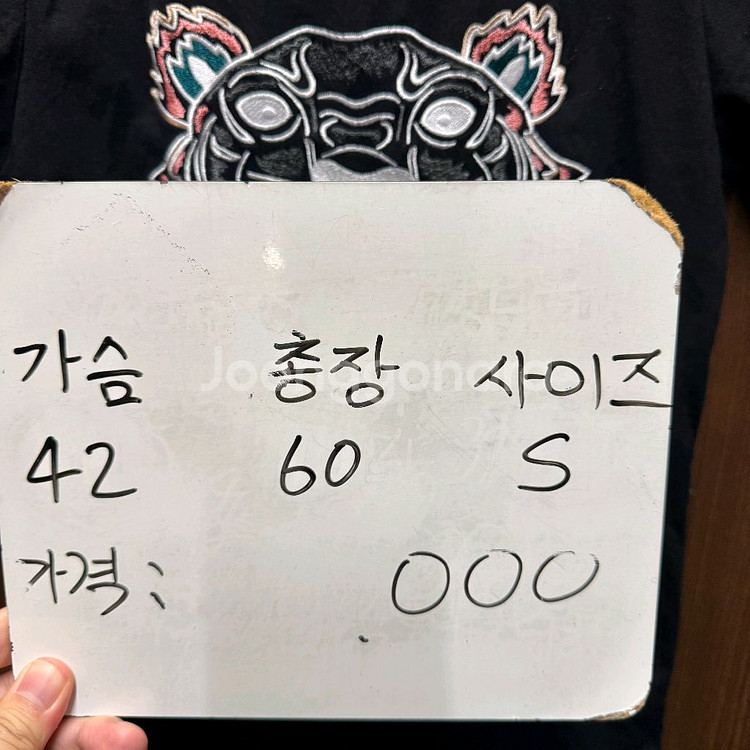 가슴 총장 사이즈
42 60 S
가격: 000
Joonggonara